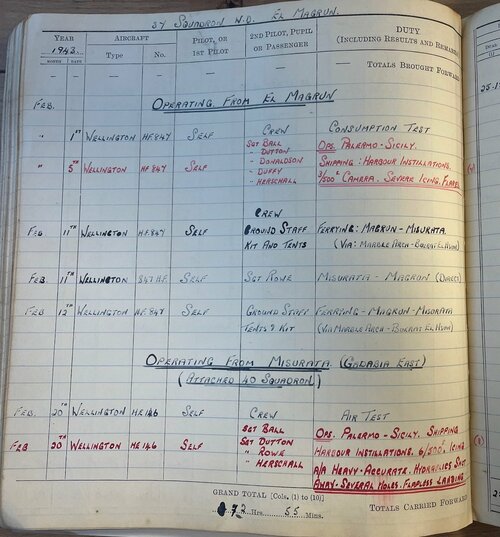 37 SQUADRON N.D. EL MAGRUN.
YEAR AIRCRAFT PILOT, OR 2ND PILOT, PUPIL DUTY
1943 Type No. 1ST PILOT OR PASSENGER (INCLUDING RESULTS AND REMARKS)
MONTH DATE
— — — — — — TOTALS BROUGHT FORWARD
FEB. OPERATING FROM EL MAGRUN
" 1ST WELLINGTON HF.847 SELF CREW CONSUMPTION TEST
SGT BALL OPS. PALERMO - SICILY.
" DUTTON
" 5TH WELLINGTON HF 847 SELF " DONALDSON SHIPPING: HARBOUR INSTILLATIONS.
" DUFFY 3/500£ CAMERA. SEVERE ICING.
" HERSCHALL
CREW
FEB 11TH WELLINGTON HF.847 SELF GROUND STAFF FERRYING: MAGRUN - MISURATA.
KIT AND TENTS (VIA: MARBLE ARCH - BOERAT EL HSUN)
FEB 11TH WELLINGTON 847 HF. SELF SGT ROWE MISURATA - MAGRUN (DIRECT)
FEB 12TH WELLINGTON HF.847 SELF GROUND STAFF FERRYING - MAGRUN - MISURATA
TENTS & KIT (VIA MARBLE ARCH - BOERAT EL HSUN)
OPERATING FROM MISURATA. (GADABIA EAST)
(ATTACHED 40 SQUADRON)
FEB. 20TH WELLINGTON HE 146 SELF CREW AIR TEST
SGT BALL OPS. PALERMO - SICILY. SHIPPING
FEB 20TH WELLINGTON HE 146 SELF SGT DUTTON HARBOUR INSTILLATIONS. 6/500£. ICING
" ROWE A/A HEAVY - ACCURATE. HYDRAULICS SHOT
" HERSCHALL AWAY - SEVERAL HOLES. FLAPLESS LANDING
GRAND TOTAL [Cols. (1) to (10)]
72 Hrs. 55 Mins. TOTALS CARRIED FORWARD